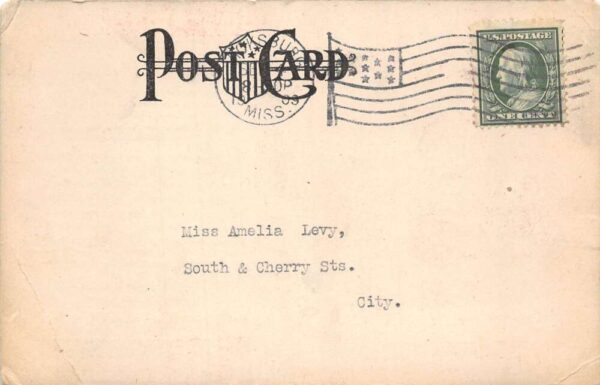 POST CARD
MISS.
U.S. POSTAGE
ONE CENT
Miss Amelia Levy,
South & Cherry Sts.
City.